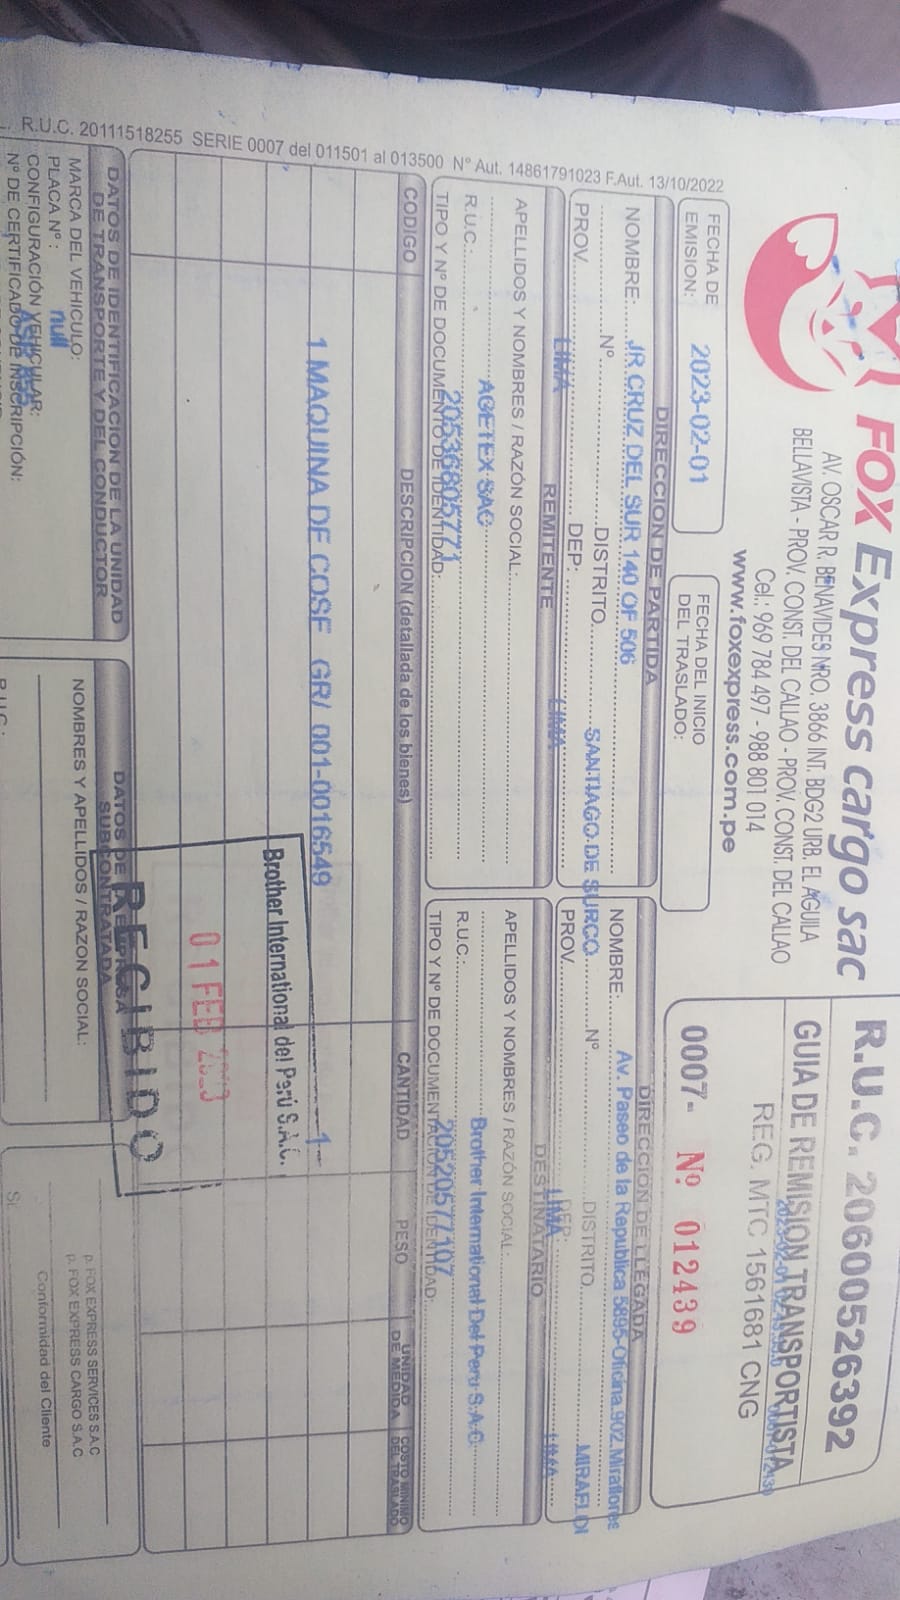 FOX Express cargo sac
AV. OSCAR R. BENAVIDES NRO. 3866 INT. BDG2 URB. EL AGUILA
BELLAVISTA - PROV. CONST. DEL CALLAO - PROV. CONST. DEL CALLAO
Cel.: 969 784 497 - 988 801 014
www.foxexpress.com.pe
R.U.C. 20600526392
GUIA DE REMISION TRANSPORTISTA
REG. MTC 1561681 CNG
0007- Nº 012439
FECHA DE EMISION: 2023-02-01
FECHA DEL INICIO DEL TRASLADO:
DIRECCION DE PARTIDA
NOMBRE: JR CRUZ DEL SUR 140 OF 506
Nº DISTRITO SANTIAGO DE SURCO
PROV. LIMA DEP: LIMA
DIRECCION DE LLEGADA
NOMBRE: Av. Paseo de la Republica 5895-Oficina 902 Miraflores
Nº DISTRITO MIRAFLOR
PROV. LIMA DEP: LIMA
REMITENTE
APELLIDOS Y NOMBRES / RAZÓN SOCIAL:
AGETEX SAC
R.U.C.: 20536805771
TIPO Y Nº DE DOCUMENTO DE IDENTIDAD:
DESTINATARIO
APELLIDOS Y NOMBRES / RAZÓN SOCIAL:
Brother International Del Peru S.A.C.
R.U.C.: 20520577107
TIPO Y Nº DE DOCUMENTACION DE IDENTIDAD:
CODIGO DESCRIPCION (detallada de los bienes) CANTIDAD PESO UNIDAD DE MEDIDA COSTO MINIMO DEL TRASLADO
1 MAQUINA DE COSE GR/ 001-0016549 1
Brother International del Perú S.A.C.
01 FEB 2023
RECIBIDO
DATOS DE IDENTIFICACION DE LA UNIDAD
DE TRANSPORTE Y DEL CONDUCTOR
MARCA DEL VEHICULO:
PLACA Nº: null
CONFIGURACIÓN VEHICULAR:
Nº DE CERTIFICADO DE INSCRIPCIÓN:
DATOS DE EMPRESA
SUBCONTRATADA
NOMBRES Y APELLIDOS / RAZON SOCIAL:
R.U.C.:
p. FOX EXPRESS SERVICES S.A.C
p. FOX EXPRESS CARGO S.A.C
Conformidad del Cliente
R.U.C. 20111518255 SERIE 0007 del 011501 al 013500 Nº Aut. 14861791023 F.Aut. 13/10/2022